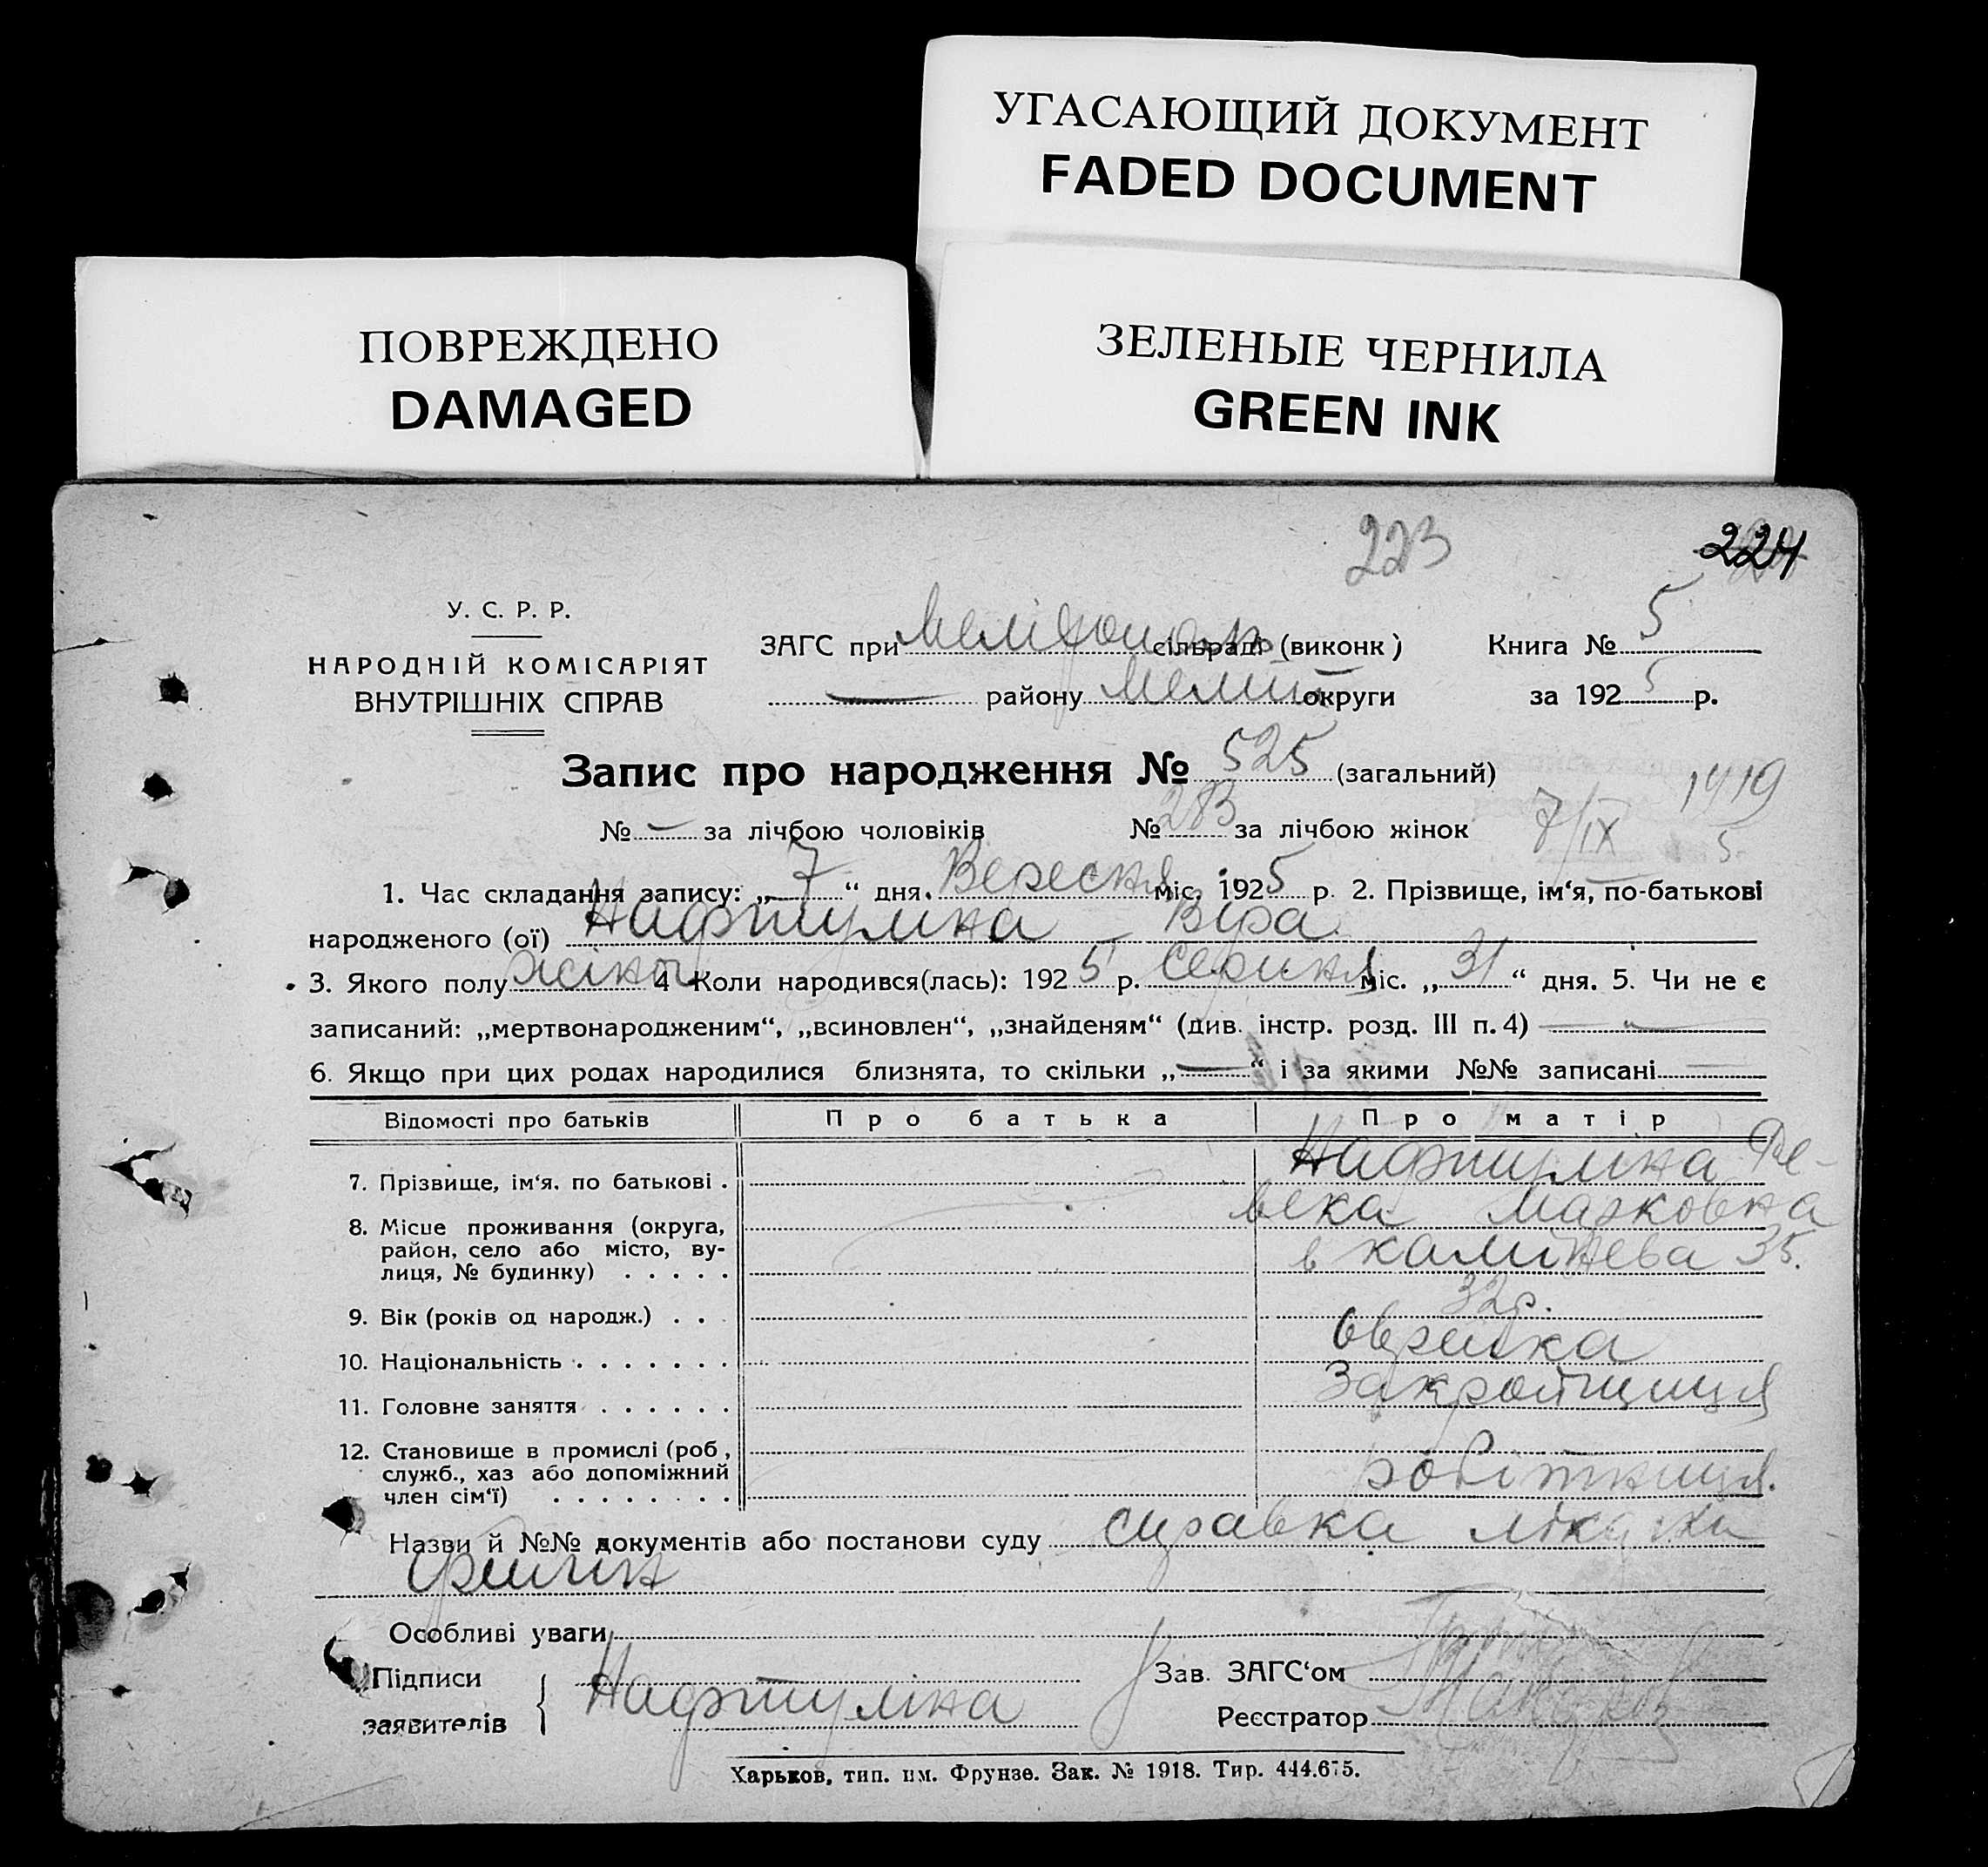 УГАСАЮЩИЙ ДОКУМЕНТ
FADED DOCUMENT
ПОВРЕЖДЕНО
DAMAGED
ЗЕЛЕНЫЕ ЧЕРНИЛА
GREEN INK
223
224
У. С. Р. Р.
НАРОДНІЙ КОМІСАРІЯТ
ВНУТРІШНІХ СПРАВ
ЗАГС при сільраді (виконк) Книга № 5
району Меліт округи за 1925 р.
Запис про народження № 525 (загальний)
1419
№ — за лічбою чоловіків № 283 за лічбою жінок 7/IX 5
1. Час складання запису: „7“ дня. Вересня міс. 1925 р. 2. Прізвище, ім‘я, по-батькові
народженого (ої) Нафтуліна Віра
3. Якого полу жіноч 4 Коли народився(лась): 1925 р. Серпня міс. „31“ дня. 5. Чи не є
записаний: „мертвонародженим“, „всиновлен“, „знайденям“ (див. інстр. розд. III п. 4) —
6. Якщо при цих родах народилися близнята, то скільки „—“ і за якими №№ записані
Відомості про батьків Про батька Про матір
7. Прізвище, ім‘я, по батькові . Нафтуліна Ре-
века Марковна
8. Місце проживання (округа,
район, село або місто, ву-
лиця, № будинку) . . . . . 35.
9. Вік (років од народж.) . . . 32р.
10. Національність . . . . . . . Єврейка
11. Головне заняття . . . . . . Закройщиця
12. Становище в промислі (роб,
служб., хаз або допоміжний
член сім‘ї) . . . . . . . . робітниця.
Назви й №№ документів або постанови суду справка
Особливі уваги
Підписи
заявителів
Нафтуліна
Зав. ЗАГС‘ом
Реєстратор
Харьков, тип. им. Фрунзе. Зак. № 1918. Тир. 444.675.